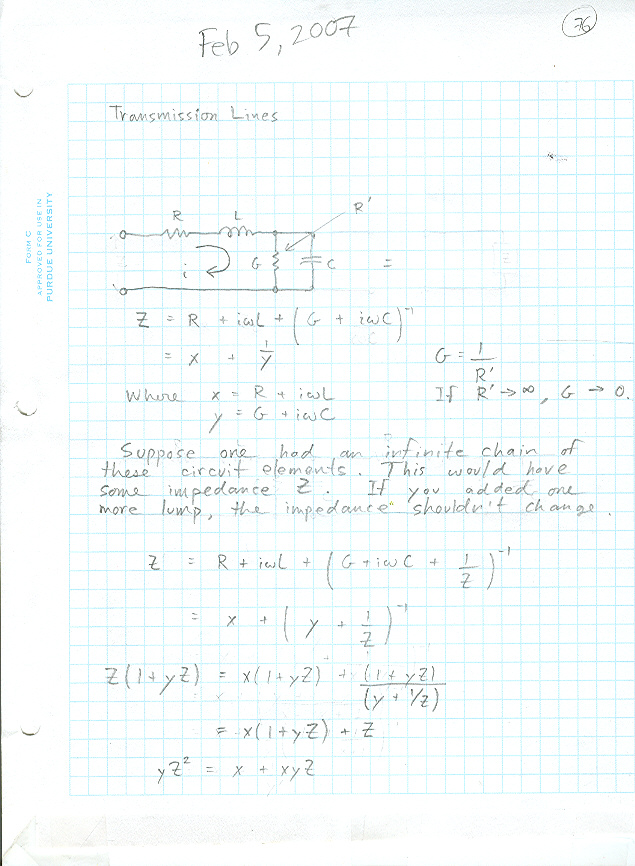 Feb 5, 2007
76
Transmission Lines
FORM C
APPROVED FOR USE IN
PURDUE UNIVERSITY
R L R'
i G C =
Z = R + iωL + (G + iωC)⁻¹
= x + 1/y
G = 1/R'
Where x = R + iωL
If R' → ∞, G → 0.
y = G + iωC
Suppose one had an infinite chain of
these circuit elements. This would have
some impedance Z. If you added one
more lump, the impedance shouldn't change.
Z = R + iωL + (G + iωC + 1/Z)⁻¹
= x + (y + 1/Z)⁻¹
Z(1 + yZ) = x(1 + yZ) + (1 + yZ)/(y + 1/Z)
= x(1 + yZ) + Z
yZ² = x + xyZ